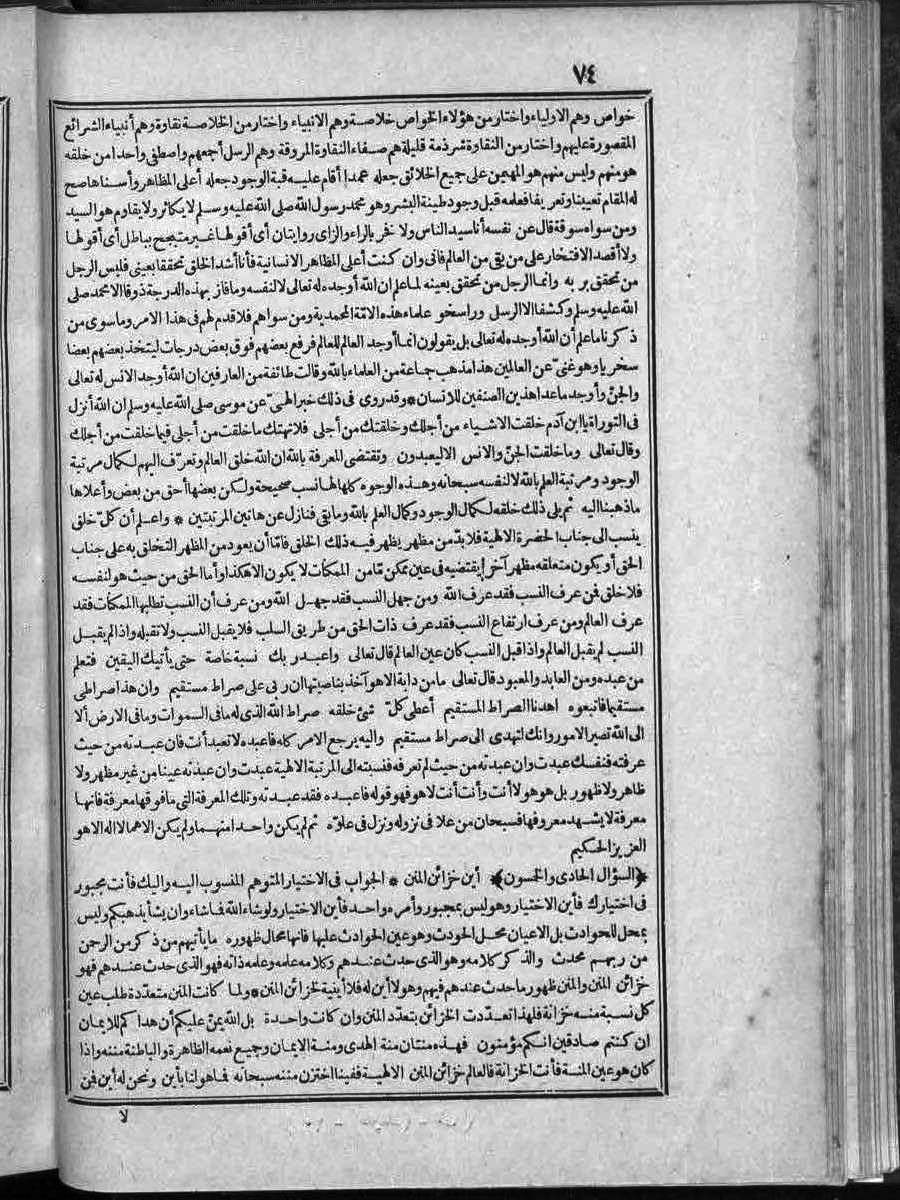 ٧٤
خواص وهم الاولياء واختار من هؤلاء الخواص خلاصة وهم الانبياء واختار من الخلاصة نقاوة وهم أنبياء الشرائع
المقصورة عليهم واختار من النقاوة شرذمة قليلة هم صفاء النقاوة المروقة وهم الرسل أجمعهم واصطفى واحدا من خلقه
هو منهم وليس منهم هو المهيمن على جميع الخلائق جعله عمدا أقام عليه قبة الوجود جعله أعلى المظاهر وأسناها صح
له المقام تعيينا وتعريفا فعلمه قبل وجود طينة البشر وهو محمد رسول الله صلى الله عليه وسلم لا يكاثر ولا يقاوم هو السيد
ومن سواه سوقة قال عن نفسه أنا سيد الناس ولا نخر بالراء والزاى روايتان أى أقولها غير متبجح بباطل أى أقولها
ولا أقصد الافتخار على من بقى من العالم فانى وان كنت أعلى المظاهر الانسانية فأنا أشد الخلق تحققا بعينى فليس الرجل
من تحقق بربه وانما الرجل من تحقق بعينه لما علم ان الله أوجده له تعالى لا لنفسه وما فاز بهذه الدرجة ذوقا الا محمد صلى
الله عليه وسلم وكشفا الا الرسل وراسخو علماء هذه الامة المحمدية ومن سواهم فلا قدم لهم فى هذا الامر وما سوى من
ذكرنا ما علم أن الله أوجده له تعالى بل يقولون انما أوجد العالم للعالم فرفع بعضهم فوق بعض درجات ليتخذ بعضهم بعضا
سخريا وهو غنىّ عن العالمين هذا مذهب جماعة من العلماء بالله وقالت طائفة من العارفين ان الله أوجد الانس له تعالى
والجنّ وأوجد ما عدا هذين الصنفين للانسان * وقد روى فى ذلك خبر الهىّ عن موسى صلى الله عليه وسلم ان الله أنزل
فى التوراة يا ابن آدم خلقت الاشياء من أجلك وخلقتك من أجلى فلا تهتك ما خلقت من أجلى فيما خلقت من أجلك
وقال تعالى وما خلقت الجنّ والانس الا ليعبدون وتقتضى المعرفة بالله ان الله خلق العالم وتعرّف اليهم لكمال مرتبة
الوجود ومرتبة العلم بالله لا لنفسه سبحانه وهذه الوجوه كلها لها نسب صحيحة ولكن بعضها أحق من بعض وأعلاها
ما ذهبنا اليه ثم يلى ذلك خلقه لكمال الوجود وكمال العلم بالله وما بقى فنازل عن هاتين المرتبتين * واعلم أن كلّ خلق
ينسب الى جناب الحضرة الالهية فلا بدّ من مظهر يظهر فيه ذلك الخلق فامّا أن يعود من المظهر التخلق به على جناب
الحق أو يكون متعلقه مظهر آخر يقتضيه فى عين ممكن مّا من الممكنات لا يكون الا هكذا وأما الحق من حيث هو لنفسه
فلا خلق فمن عرف النسب فقد عرف الله ومن جهل النسب فقد جهل الله ومن عرف أن النسب تطلبها الممكنات فقد
عرف العالم ومن عرف ارتفاع النسب فقد عرف ذات الحق من طريق السلب فلا يقبل النسب ولا تقبله واذا لم يقبل
النسب لم يقبل العالم واذا قبل النسب كان عين العالم قال تعالى واعبد ربك نسبة خاصة حتى يأتيك اليقين فتعلم
من عبده ومن العابد والمعبود قال تعالى ما من دابة الا هو آخذ بناصيتها ان ربى على صراط مستقيم وان هذا صراطى
مستقيما فاتبعوه اهدنا الصراط المستقيم أعطى كلّ شئ خلقه صراط الله الذى له ما فى السموات وما فى الارض ألا
الى الله تصير الامور وانك لتهدى الى صراط مستقيم واليه يرجع الامر كله فاعبده لا تعبد أنت فان عبدته من حيث
عرفته فنفسك عبدت وان عبدته من حيث لم تعرفه فنسبته الى المرتبة الالهية عبدت وان عبدته عينا من غير مظهر ولا
ظاهر ولا ظهور بل هو هو لا أنت وأنت أنت لا هو فهو قوله فاعبده فقد عبدته وتلك المعرفة التى ما فوقها معرفة فانها
معرفة لا يشهد معروفها فسبحان من علا فى نزوله ونزل فى علوّه ثم لم يكن واحدا منهما ولم يكن الا هما لا اله الا هو
العزيز الحكيم
﴿السؤال الحادى والخمسون﴾ أين خزائن المنن * الجواب فى الاختيار المتوهم المنسوب اليه واليك فأنت مجبور
فى اختيارك فأين الاختيار وهو ليس بمجبور وأمره واحد فأين الاختيار ولو شاء الله فشاء وان يشأ يذهبكم وليس
بمحل للحوادث بل الاعيان محل الحودث وهو عين الحوادث عليها فانها محال ظهوره ما يأتيهم من ذكر من الرحمن
من ربهم محدث والذكر كلامه وهو الذى حدث عندهم وكلامه علمه وعلمه ذاته فهو الذى حدث عندهم فهو
خزائن المنن والمنن ظهور ما حدث عندهم فيهم وهو لا أين له فلا أينية لخزائن المنن * ولما كانت المنن متعدّدة طلب عين
كل نسبة منه خزانة فلهذا تعدّدت الخزائن بتعدّد المنن وان كانت واحدة بل الله يمنّ عليكم أن هداكم للايمان
ان كنتم صادقين انكم مؤمنون فهذه منتان منة الهدى ومنة الايمان وجميع نعمه الظاهرة والباطنة مننه واذا
كان هو عين المنة فأنت الخزانة فالعالم خزائن المنن الالهية ففينا اختزن مننه سبحانه فما هو لنا بأين ونحن له أين فمن
لا